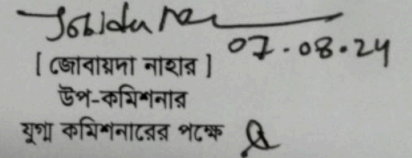 Jobida Na
07.08.24
[ জোবায়দা নাহার ]
উপ-কমিশনার
যুগ্ম কমিশনারের পক্ষে